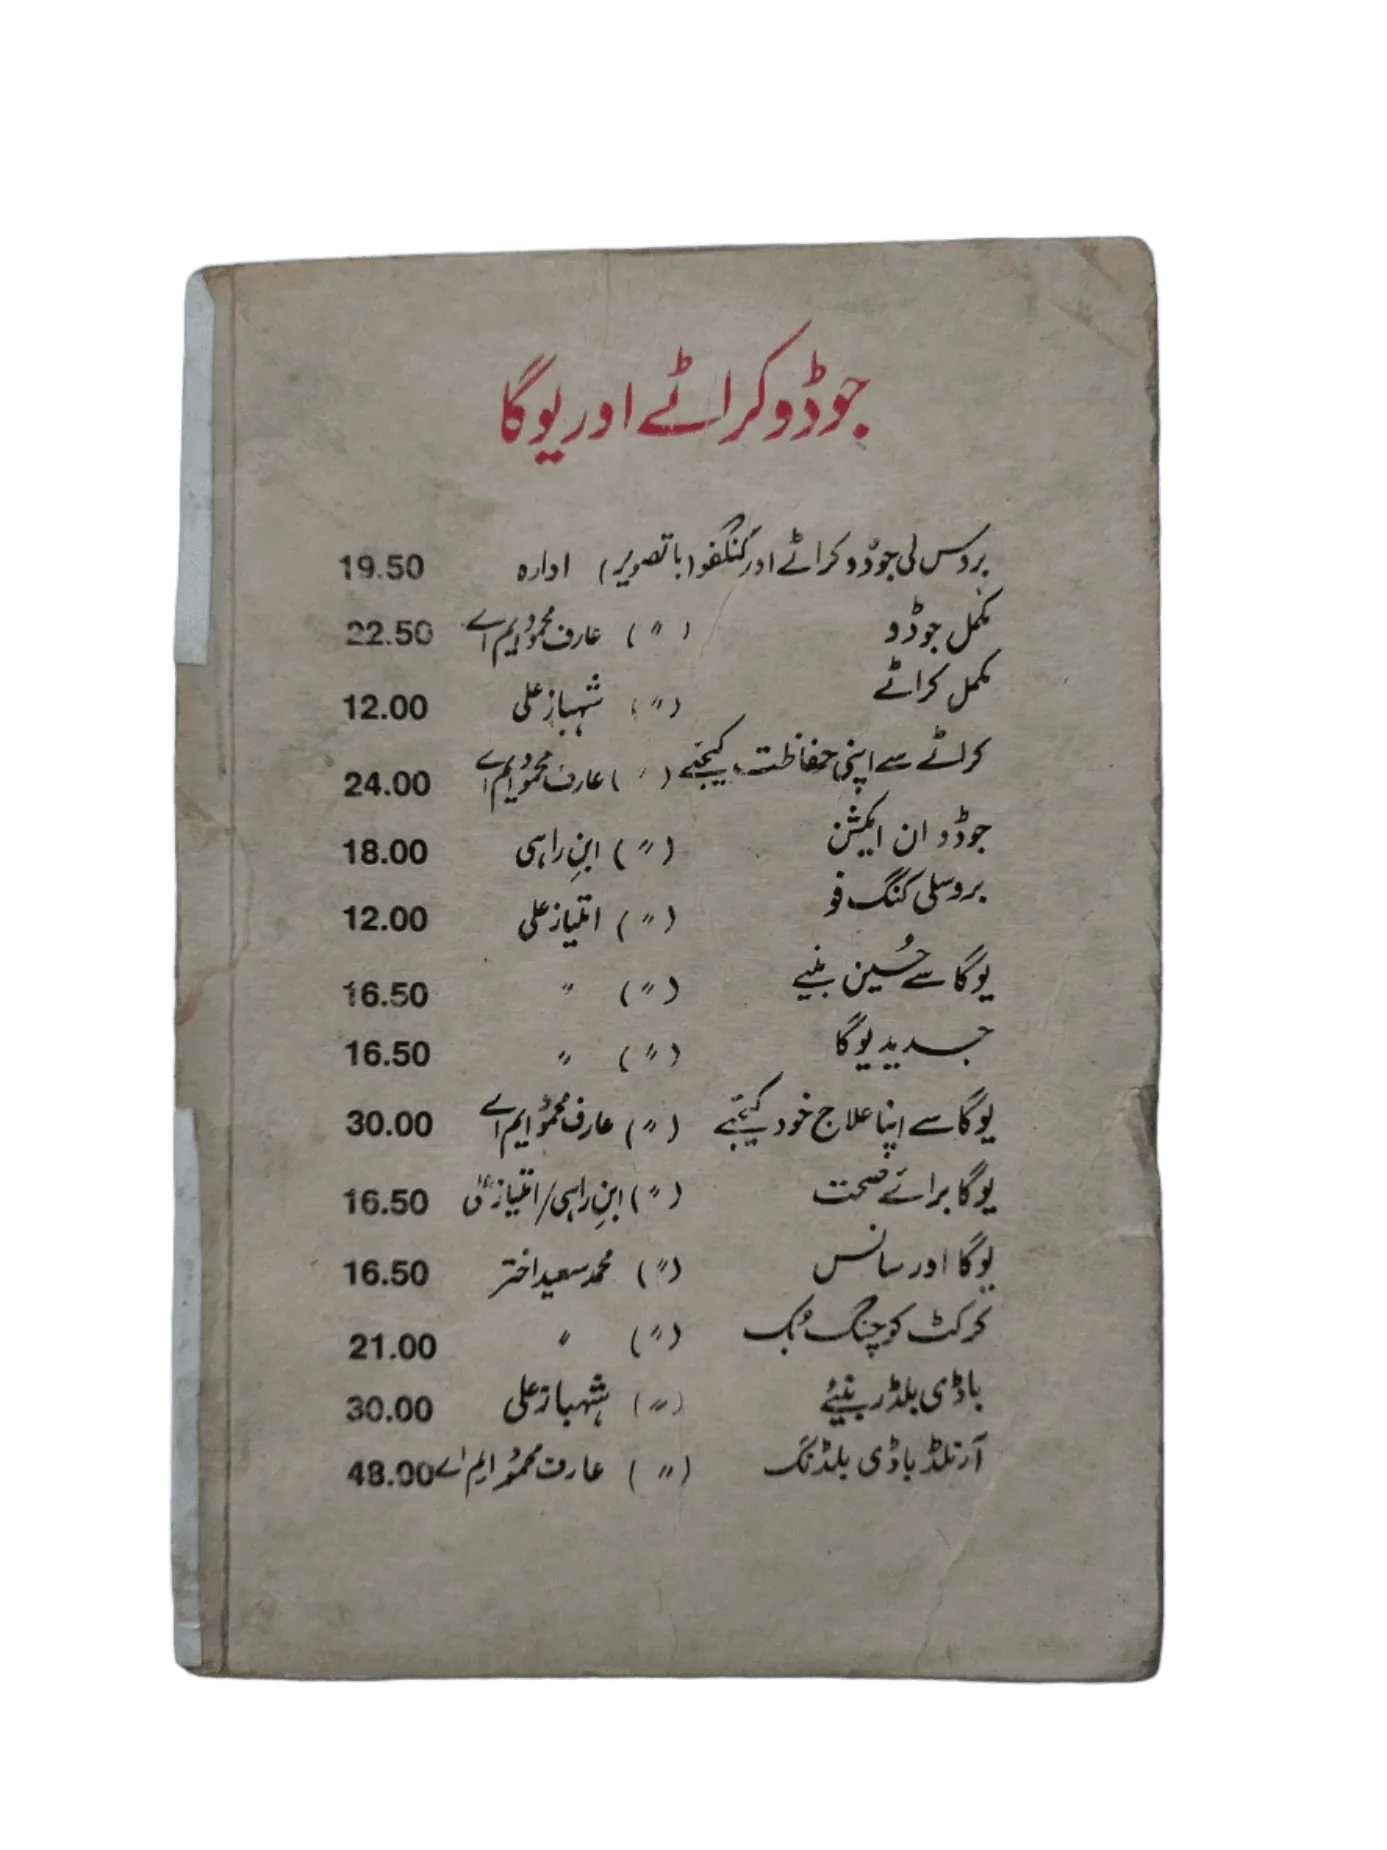 جوڈو کراٹے اور یوگا
بروس لی جوڈو کراٹے اور کنگفو (باتصویر) ادارہ 19.50
مکمل جوڈو ( 〃 ) عارف محمود ایم اے 22.50
مکمل کراٹے ( 〃 ) شہباز علی 12.00
کراٹے سے اپنی حفاظت کیجئے ( 〃 ) عارف محمود ایم اے 24.00
جوڈو ان ایکشن ( 〃 ) ابنِ راہی 18.00
بروسلی کنگ فو ( 〃 ) امتیاز علی 12.00
یوگا سے حُسین بنیے ( 〃 ) 〃 16.50
جدید یوگا ( 〃 ) 〃 16.50
یوگا سے اپنا علاج خود کیجئے ( 〃 ) عارف محمود ایم اے 30.00
یوگا برائے صحت ( 〃 ) ابنِ راہی/امتیاز علی 16.50
یوگا اور سانس ( 〃 ) محمد سعید اختر 16.50
کرکٹ کوچنگ بک ( 〃 ) 〃 21.00
باڈی بلڈر بنیئے ( 〃 ) شہباز علی 30.00
آرنلڈ باڈی بلڈنگ ( 〃 ) عارف محمود ایم اے 48.00